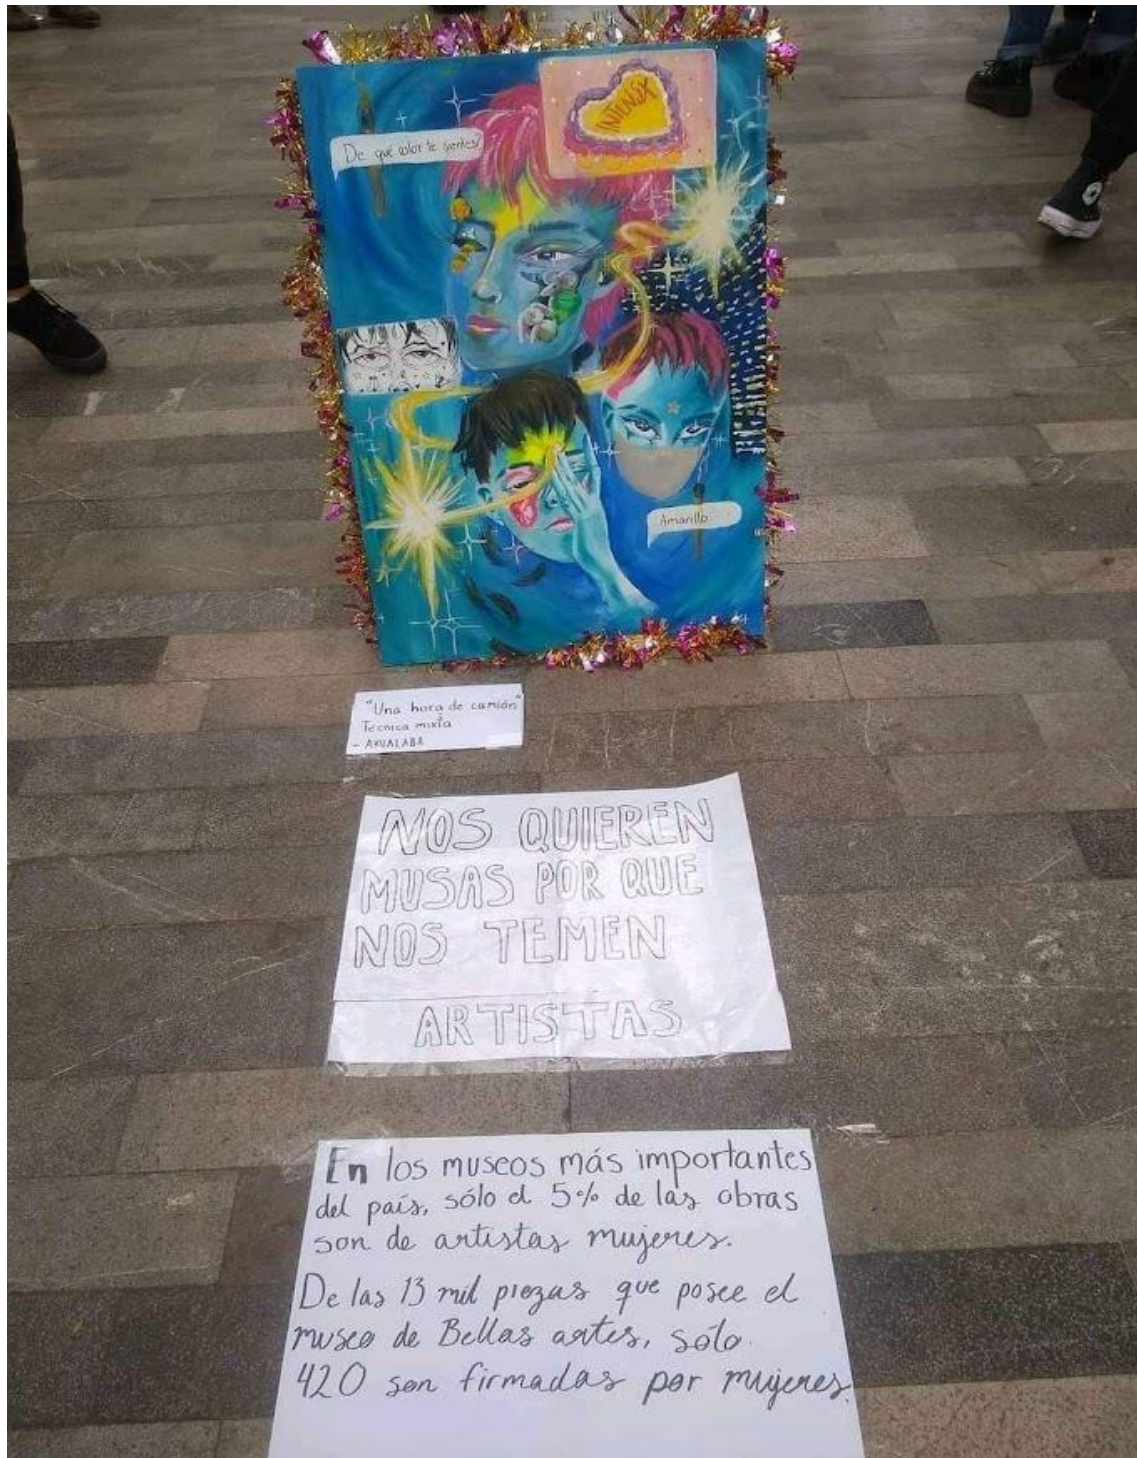 INTENSX
De qué color te sientes?
Amarillo
"Una hora de camión"
Técnica mixta
- AKUALABA
NOS QUIEREN
MUSAS POR QUE
NOS TEMEN
ARTISTAS
En los museos más importantes
del país, sólo el 5% de las obras
son de artistas mujeres.
De las 13 mil piezas que posee el
museo de Bellas artes, sólo
420 son firmadas por mujeres.